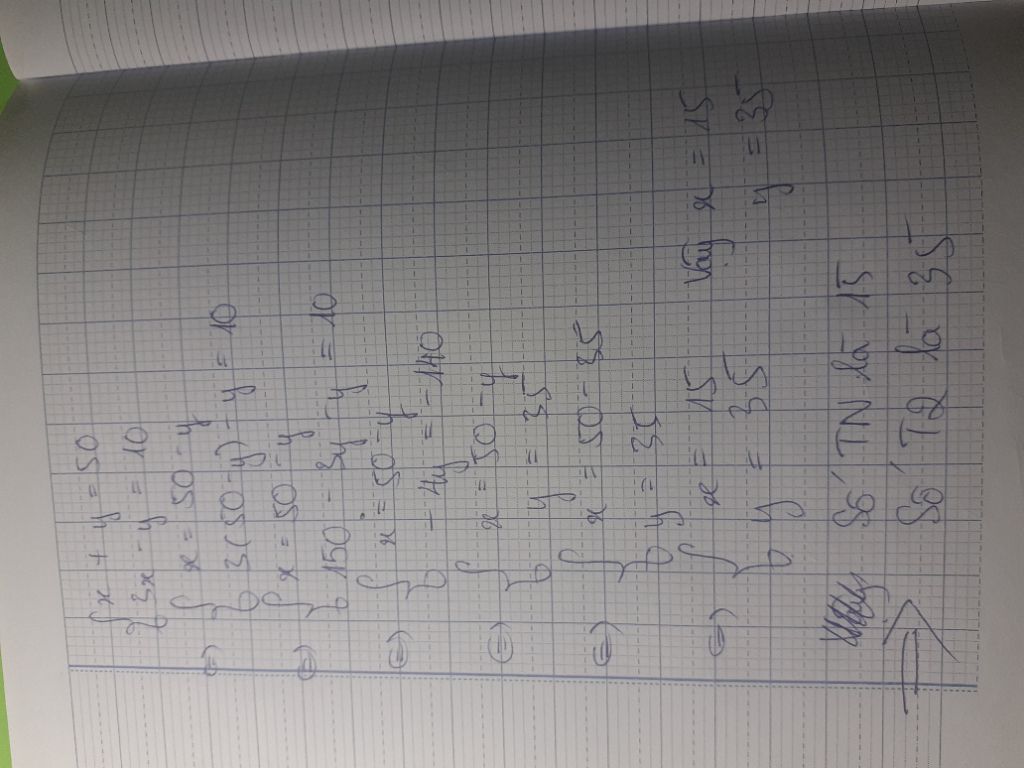 { x + y = 50
{ 3x - y = 10
⇔ { x = 50 - y
{ 3(50 - y) - y = 10
⇔ { x = 50 - y
{ 150 - 3y - y = 10
⇔ { x = 50 - y
{ - 4y = - 140
⇔ { x = 50 - y
{ y = 35
⇔ { x = 50 - 35
{ y = 35
⇔ { x = 15 Vậy x = 15
{ y = 35 y = 35
Số TN là 15
⇒ Số T2 là 35